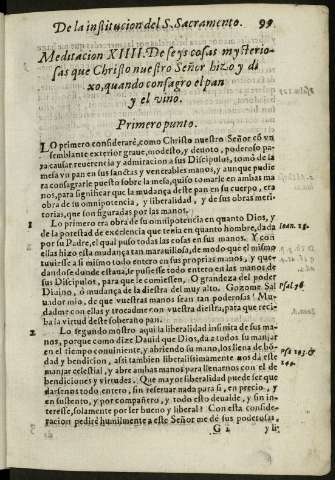 De la institucion del S. Sacramento. 99
Meditacion XIIII. De seys cosas mysterio-
sas que Christo nuestro Señor hizo y di
xo, quando consagro el pan
y el vino.
Primero punto.
LO primero considerarè, como Christo nuestro Señor cõ vn
semblante exterior graue, modesto, y deuoto, poderoso pa-
ra causar reuerencia y admiracion a sus Discipulos, tomò de la
mesa vn pan en sus sanctas y venerables manos, y aunque pudie
ra consagrarle puesto sobre la mesa, quiso tomarle en ambas ma
nos, para significar que la mudança deste pan en su cuerpo, era
obra de su omnipotencia, y liberalidad, y de sus obras meri-
torias, que son figuradas por las manos.
1 Lo primero era obra de su omnipotencia en quanto Dios, y
de la potestad de excelencia que tenia en quanto hombre, dada Ioan. 13.
por su Padre, el qual puso todas las cosas en sus manos. Y con
ellas hizo esta mudança tan marauillosa, de modo que el mismo
tuuiesse a si mismo todo entero en sus proprias manos, y que-
dandose donde estaua, se pusiesse todo entero en las manos de
sus Discipulos, para que le comiessen. O grandeza del poder
Diuino, ô mudança de la diestra del muy alto. Gozome Sal Psal. 76
uador mio, de que vuestras manos sean tan poderosas! Mu
dadme con ellas y trocadme con vuestra diestra, para que reci-
ba la virtud deste soberano pan.
2 Lo segundo mostro aqui la liberalidad infinita de sus ma-
nos, porque como dize Dauid que Dios, da a todos su manjar
en el tiempo conuiniente, y abriendo su mano, los llena de bõ- Psa. 103. &
dad y bendicion, assi tambien liberalissimamente nos dà este 144.
manjar celestial, y abre ambas manos para llenarnos con el de
bendiciones y virtudes. Que mayor liberalidad puede ser que
darsenos todo entero, sin reseruar nada para si, en precio, y
en sustento, y por compañero, y todo esto de valde, y sin in-
teresse, solamente por ser bueno y liberal? Con esta conside-
racion pedirè humilmente a este Señor me dè sus poderosas,
y li-